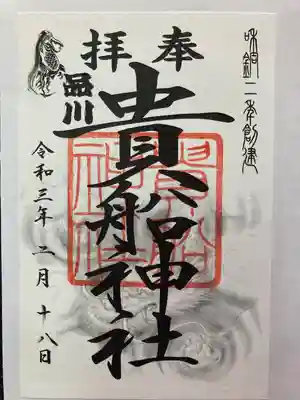 和銅二年創建
奉拝
品川
貴船神社
令和三年二月十八日